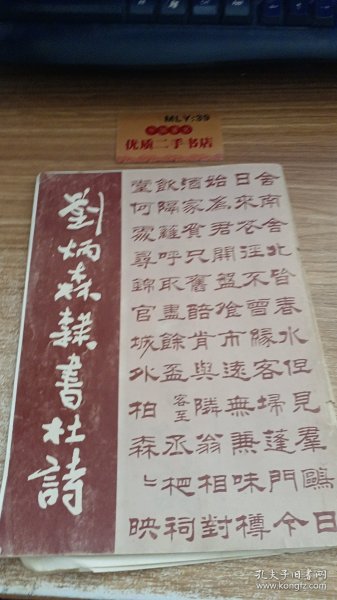 MLY:39
优质二手书店
劉炳森隸書杜詩
舍南舍北皆春水但見羣鷗日
日來花徑不曾緣客埽蓬門今
始為君開盤飧市遠無兼味樽
酒家貧只舊醅肯與隣翁相對
飲隔籬呼取盡餘盃客至丞相祠
堂何處尋錦官城外柏森〻映
孔夫子旧书网
www.kongfz.com